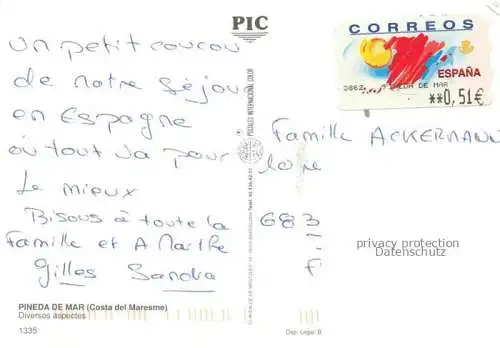 PIC
CORREOS
ESPAÑA
DE MAR
**0,51€
un petit coucou
de notre séjour
en Espagne
où tout va pour
Le mieux
Bisous à toute la
Famille et A Marthe
Gilles Sandra
Famille ACKERMANN
683
F
privacy protection
Datenschutz
POSTALES INTERNACIONAL COLOR
PINEDA DE MAR (Costa del Maresme)
Diversos aspectes
1335
Dep. Legal: B